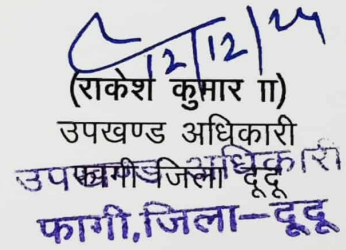 12/12/24
(राकेश कुमार II)
उपखण्ड अधिकारी
फागी जिला दूदू
उपखण्ड अधिकारी
फागी,जिला–दूदू